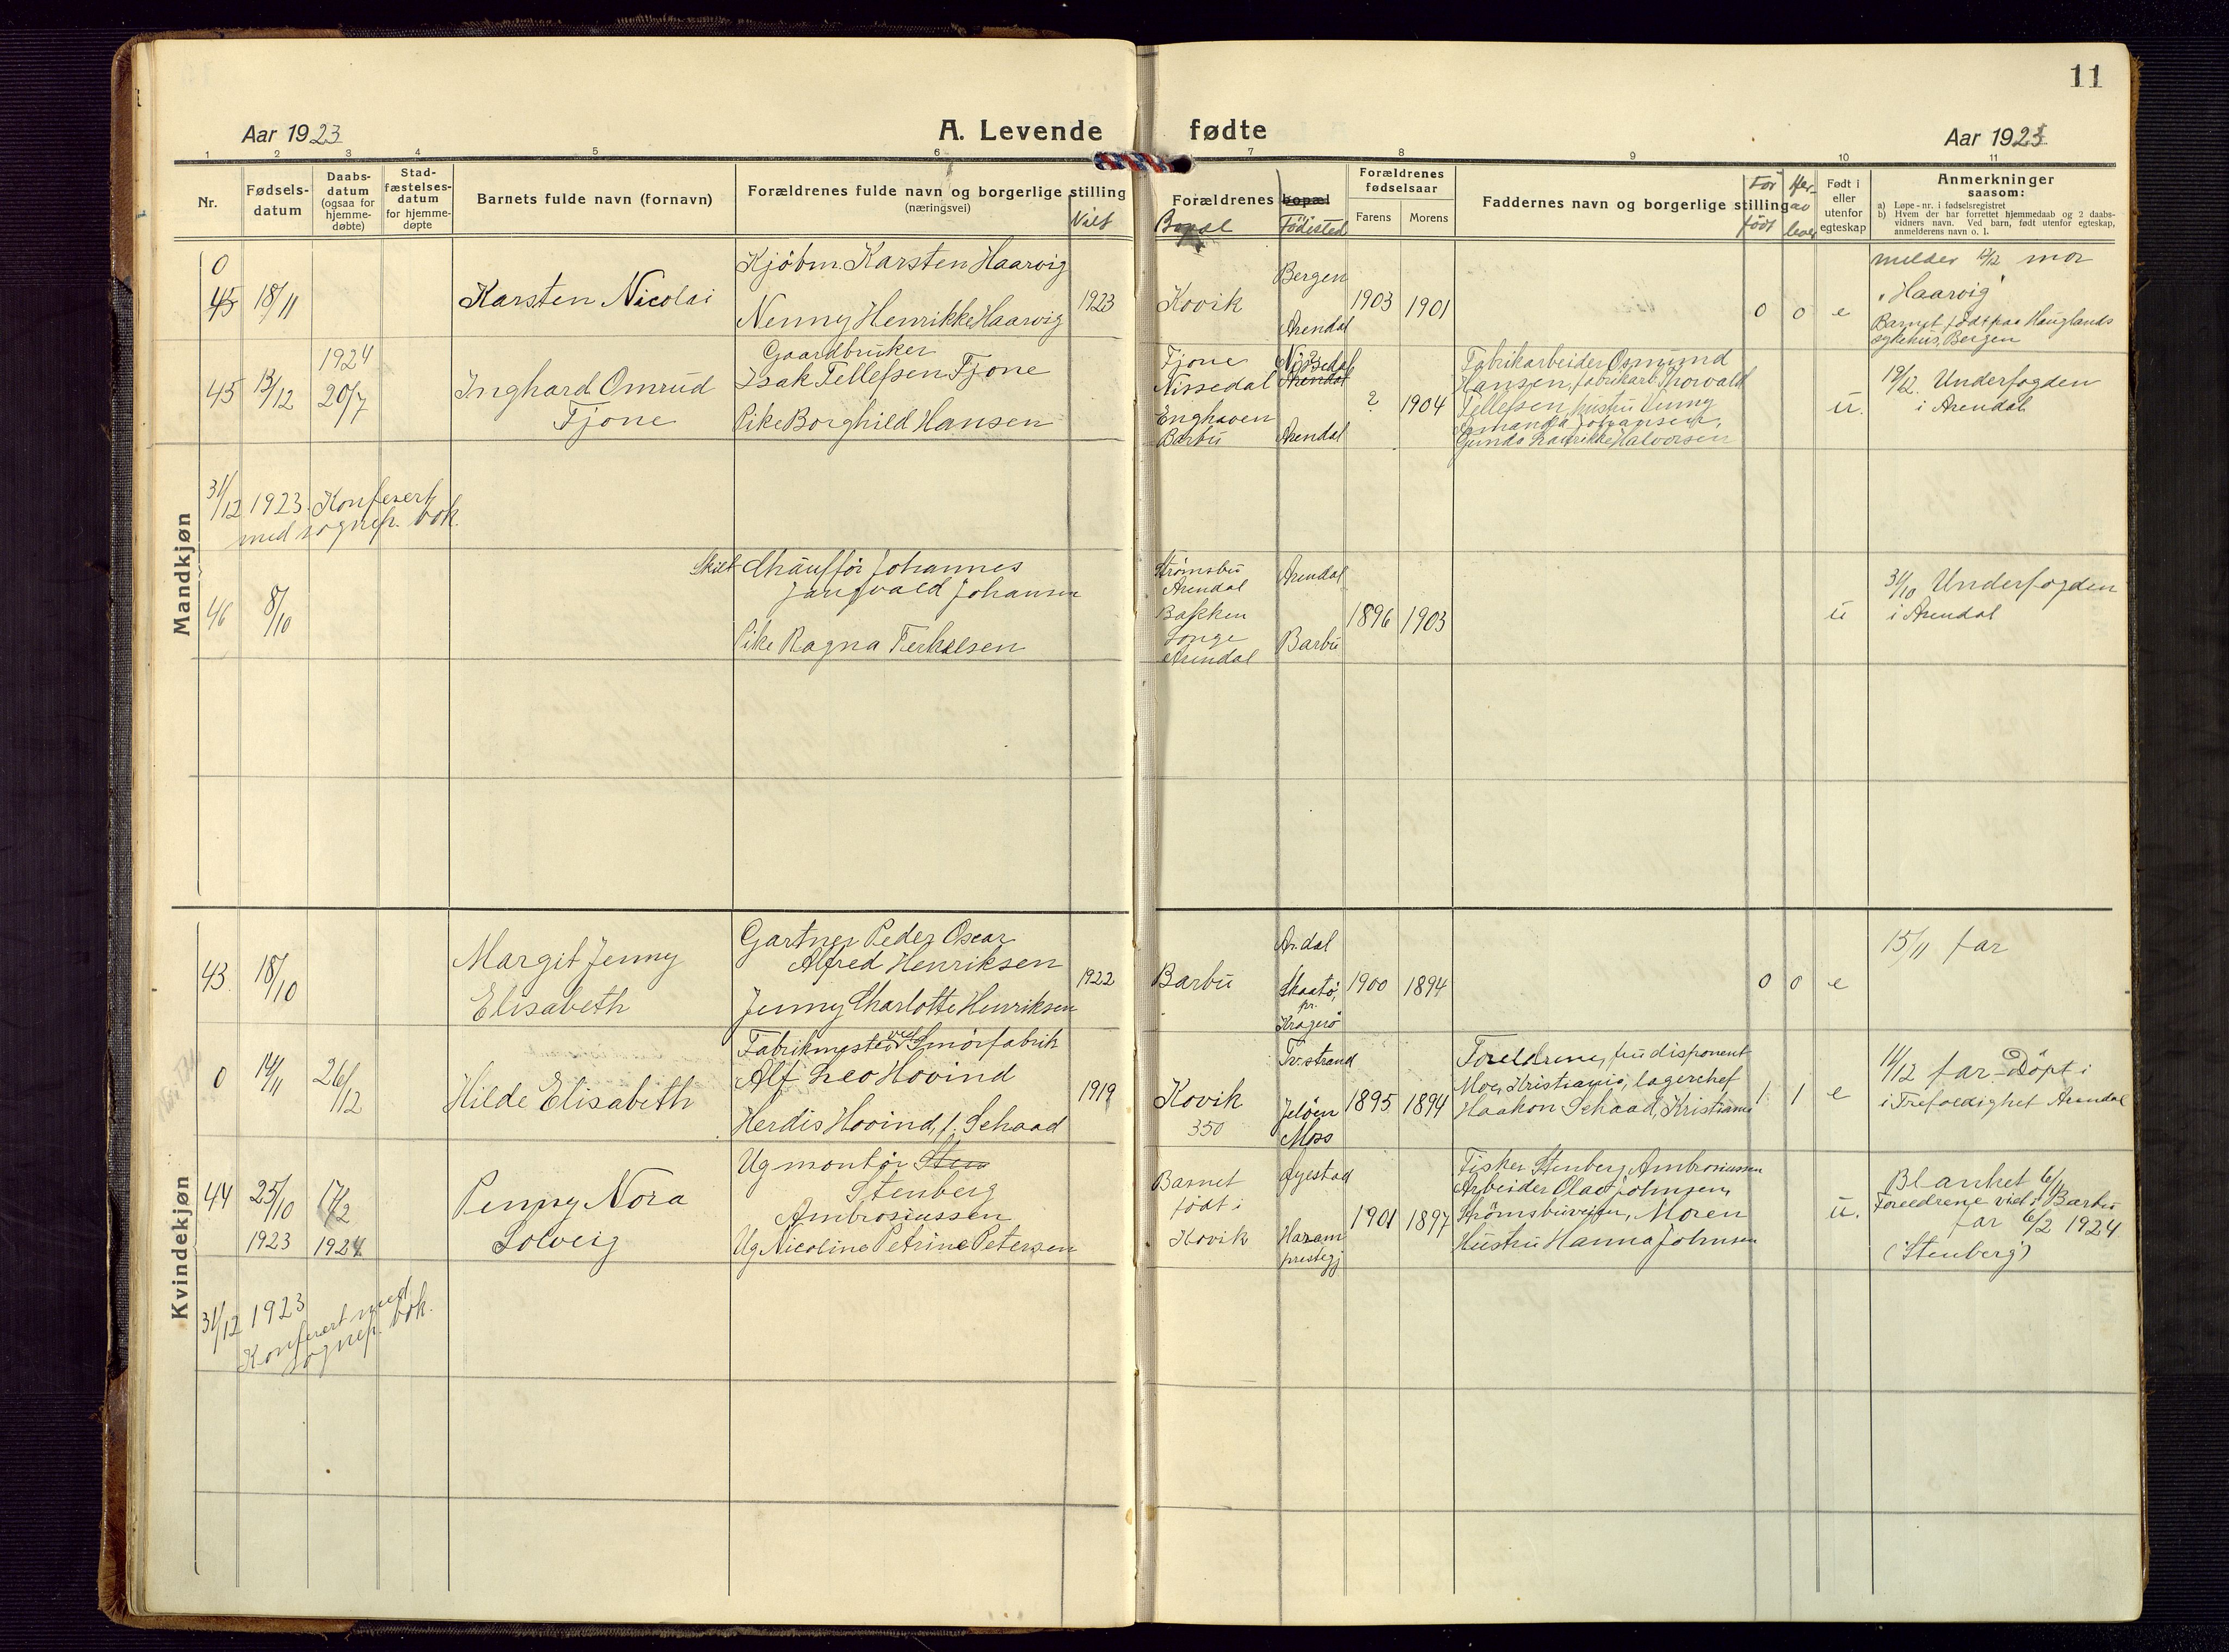 11
Aar 1923
A. Levende fødte
Aar 1923
1 2 3 4 5 6 7 8 9 10 11
Nr.
Fødsels-
datum
Daabs-
datum
(ogsaa for
hjemme-
døbte)
Stad-
fæstelses-
datum
for hjemme-
døpte
Barnets fulde navn (fornavn)
Forældrenes fulde navn og borgerlige stilling
(næringsvei)
Viet
Forældrenes bopæl
Bopæl
Födested
Forældrenes
fødselsaar
Farens
Morens
Faddernes navn og borgerlige stilling
För
födt
Her-
av
lever
Født i
eller
utenfor
egteskap
Anmerkninger
saasom:
a) Løpe-nr. i fødselsregistret
b) Hvem der har forrettet hjemmedaab og 2 daabs-
vidners navn. Ved barn, født utenfor egteskap,
anmelderens navn o. l.
Mandkjøn
0
45
18/11
Karsten Nicolai
Kjöbm. Karsten Haarvig
Nenny Henrikke Haarvig
1923
Kovik
Bergen
Arendal
1903
1901
0
0
e
melder 12/12 mor
"Haarvig"
Barnet födt paa Hauglands
sykehus, Bergen
45
13/12
1924
20/7
Inghard Omrud
Fjone
Gaardbruker
Isak Tellefsen Fjone
Pike Borghild Hansen
Fjone
Nissedal
Enghaven
Barbu
Nissedal
Arendal
Arendal
?
1904
Fabrikarbeider Osmund
Hansen, fabrikarb. Thorvald
Tellefsen, hustru Venny
Amanda Johansen,
Gunda Henrikke Halvorsen
u.
19/12. Underfogden
i Arendal
31/12 1923. Konferert
med sognep. bok.
46
8/10
Skilt Chaufför Johannes
Jangvald Johansen
Pike Ragna Terkelsen
Strømsbu
Arendal
Bakken
Songe
Arendal
Arendal
Barbu
1896
1903
u
31/10 Underfogden
i Arendal
Kvindekjøn
43.
18/10
Margit Jenny
Elisabeth
Gartner Peder Oscar
Alfred Henriksen
Jenny Charlotte Henriksen
1922
Barbu
Ar.dal
Skaatø,
pr.
Kragerö
1900
1894
0
0
e
15/11 far
0
14/11
26/12
Hilde Elisabeth
Fabrikmester ved Smörfabrik
Alf Leo Hovind
Herdis Hovind, f. Schaad
1919
Kovik
350
Tv.strand
Jelöen
Moss
1895
1894
Foreldrene, fru disponent
Moe, Kristiania, lagerchef
Haakon Schaad, Kristiania
1
1
e
14/12 far Döpt i
i Trefoldighet Arendal
44
25/10
1923
17/2
1924
Penny Nora
Solveig
Ug montör Sten
Stenberg
Ambrosiussen
Ug Nicoline Petrine Petersen
Barnet
födt i
Kovik
Øyestad
Haram
prestegj
1901
1897
Fisker Stenberg Ambrosiussen
Arbeider Olav Johnsen,
Strömsbuveien, Moren
Hustru Hanna Johnsen
u.
Blanket 6/11
Foreldrene viet i Barbu
far 6/2 1924
(Stenberg)
31/12 1923
Konferert med
sognep. bok.